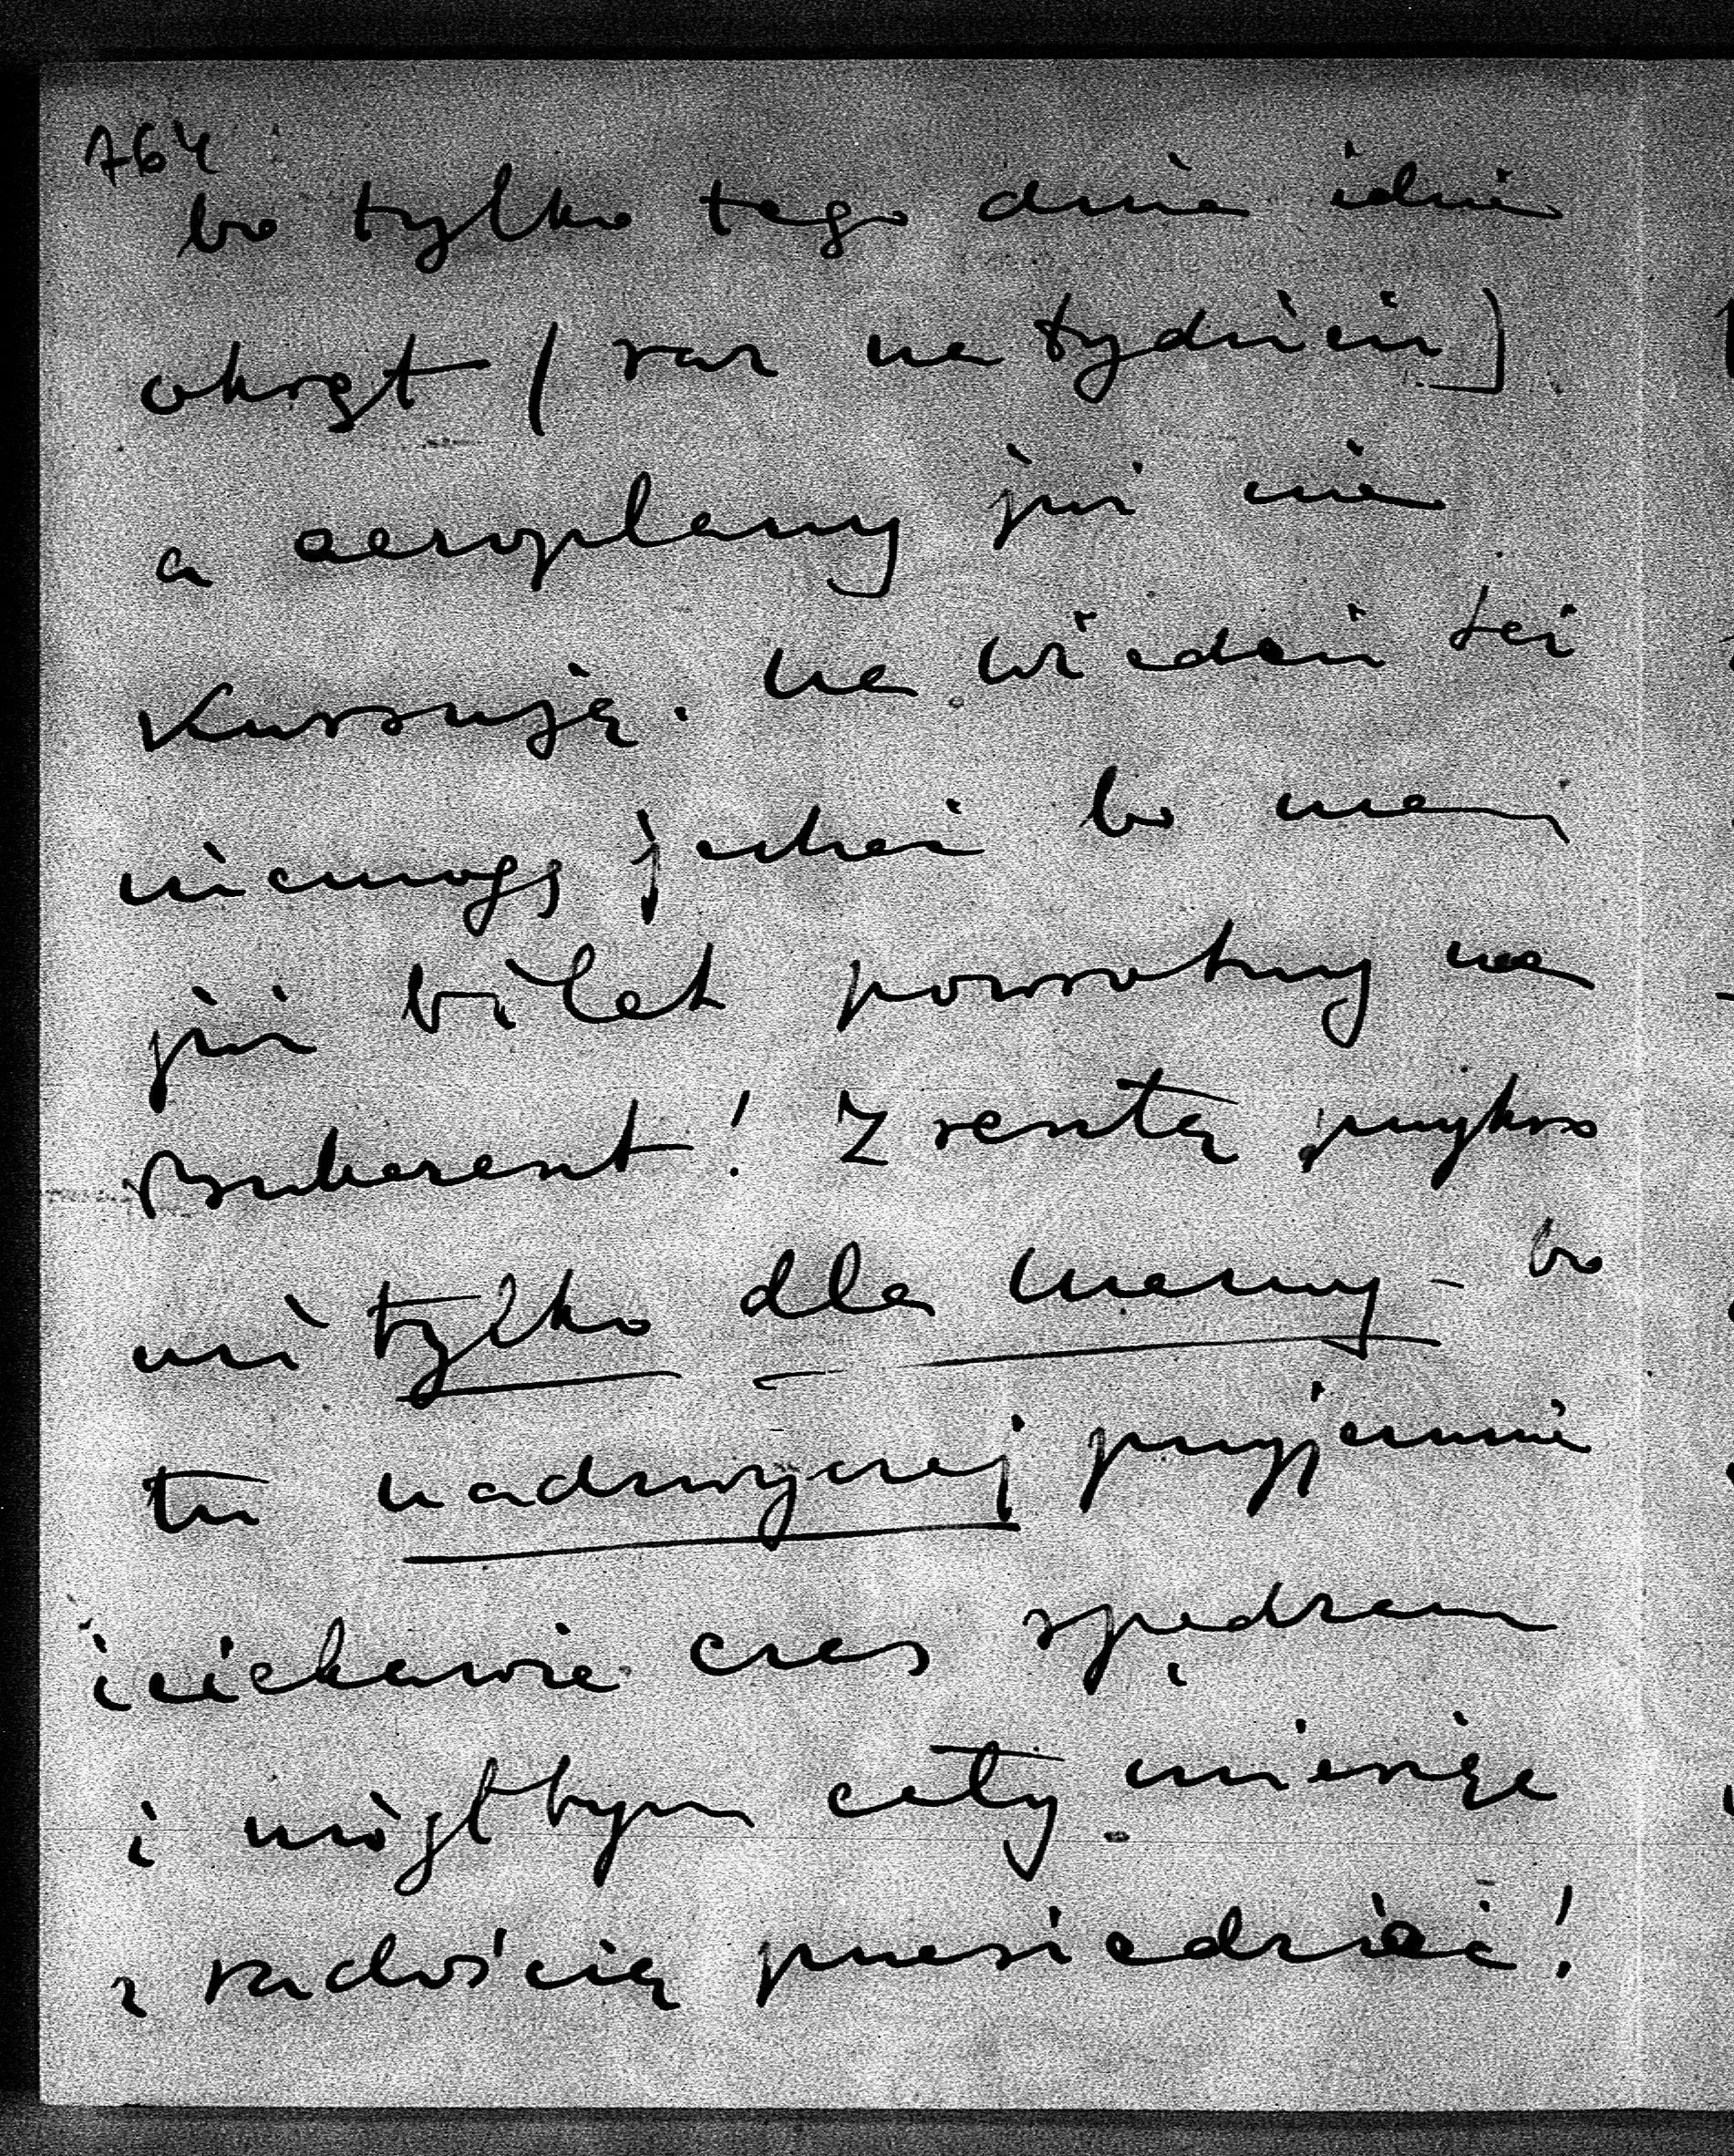 764
bo tylko tego dnia idzie
okręt (raz na tydzień)
a aeroplany już nie
kursują. na Wiedeń też
niemogę jechać bo mam
już bilet powrotny na
Bukareszt! Zresztą przykro
mi tylko dla mamy – bo
tu nadzwyczaj przyjemnie
i ciekawie czas spędzam
i mógłbym cały miesiąc
z radością przesiedzieć!